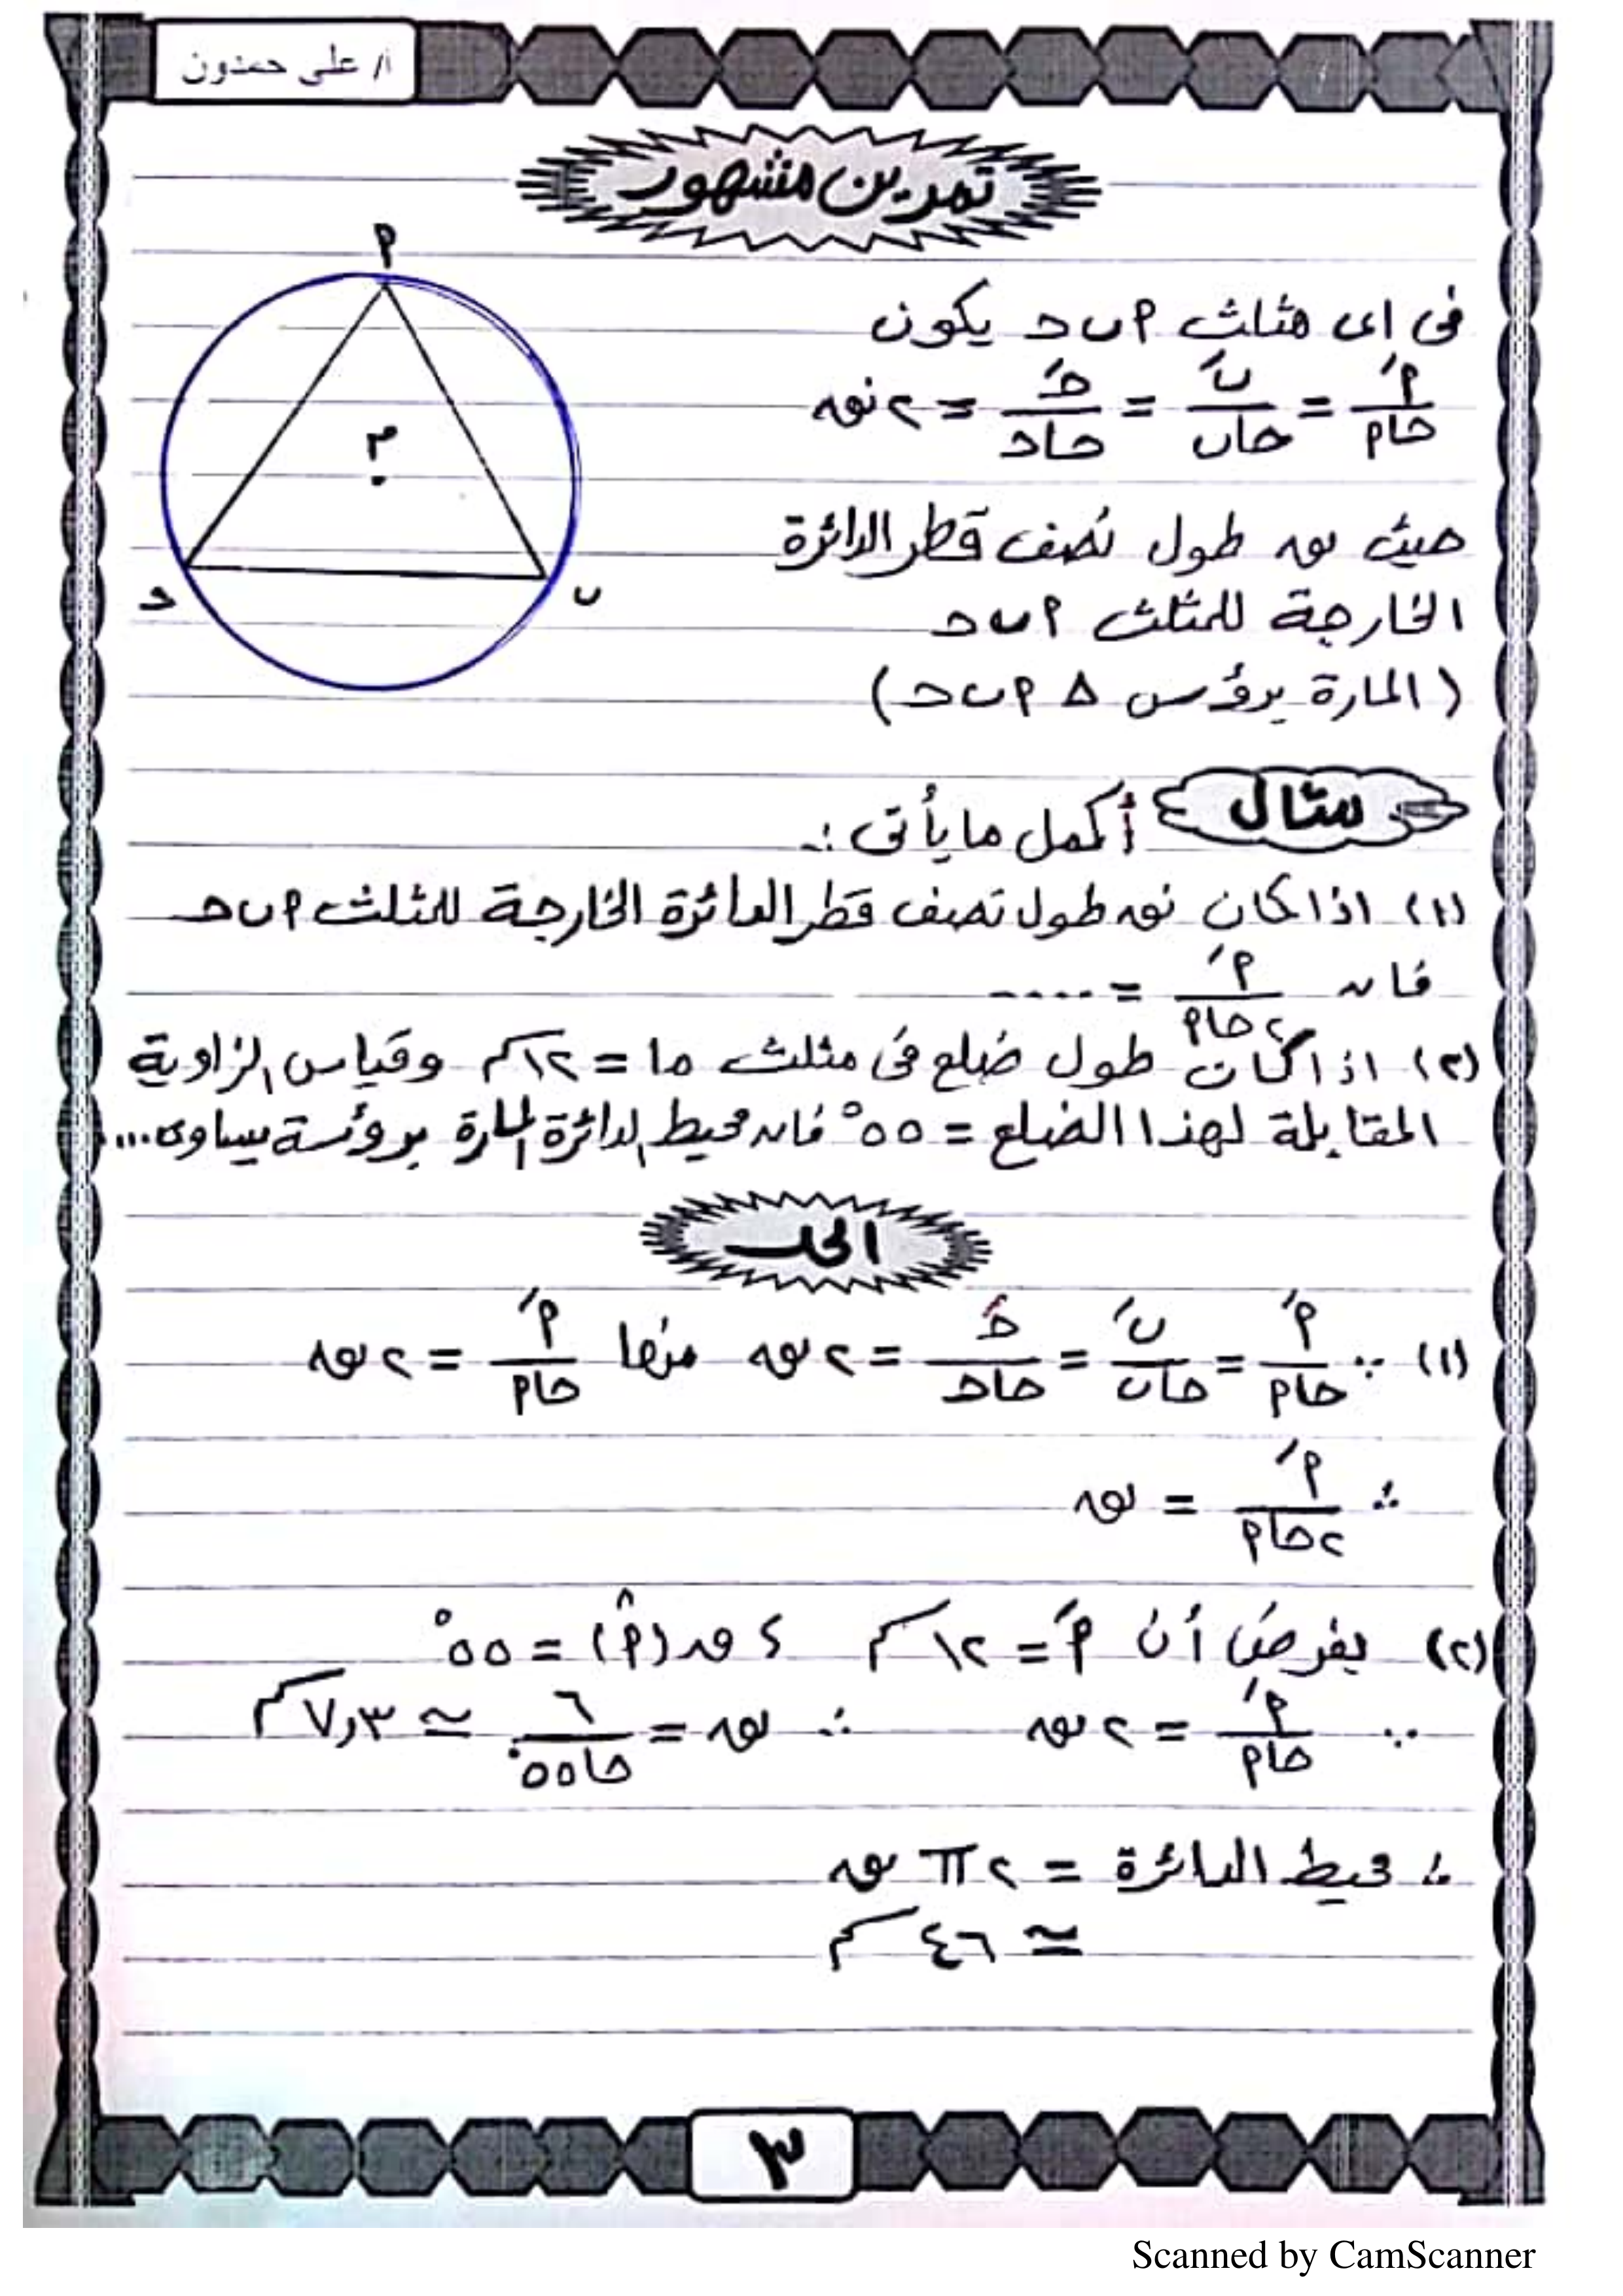 أ/ على حمدون
تمرين مشهور
فى اى مثلث أ ب حـ يكون
أَ / حا أ = بَ / حا ب = حـَ / حا حـ = ٢ نق
حيث نق طول نصف قطر الدائرة
الخارجة للمثلث أ ب حـ
(المارة برؤس Δ أ ب حـ)
أ
م
حـ ب
مثال أكمل ما يأتى :.
(١) اذا كان نق طول نصف قطر الدائرة الخارجة للمثلث أ ب حـ
فإن أَ / ٢ حا أ = ....
(٢) اذا كان طول ضلع فى مثلث ما = ١٢ سم وقياس الزاوية
المقابلة لهذا الضلع = ٥٥° فإن محيط الدائرة المارة برؤسة يساوى...
الحل
(١) ∵ أَ / حا أ = بَ / حا ب = حـَ / حا حـ = ٢ نق منها أَ / حا أ = ٢ نق
∴ أَ / ٢ حا أ = نق
(٢) بفرض أن أَ = ١٢ سم ، ق(أ̂) = ٥٥°
∵ أَ / حا أ = ٢ نق ∴ نق = ٦ / حا ٥٥° ≃ ٧,٣ سم
∴ محيط الدائرة = ٢ π نق
≃ ٤٦ سم
٣
Scanned by CamScanner